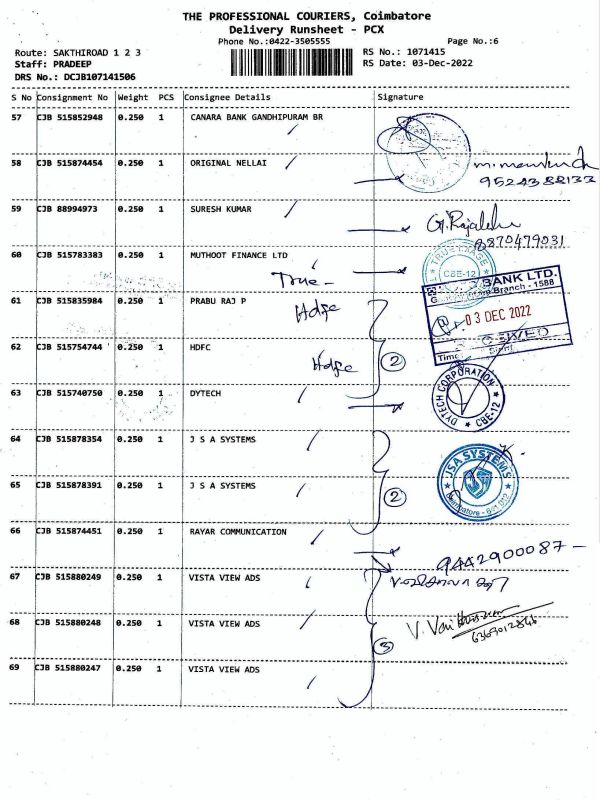 THE PROFESSIONAL COURIERS, Coimbatore
Delivery Runsheet - PCX
Phone No.:0422-3505555 Page No.:6
Route: SAKTHIROAD 1 2 3 RS No.: 1071415
Staff: PRADEEP RS Date: 03-Dec-2022
DRS No.: DCJB107141506
S No Consignment No Weight PCS Consignee Details Signature
57 CJB 515852948 0.250 1 CANARA BANK GANDHIPURAM BR
58 CJB 515874454 0.250 1 ORIGINAL NELLAI
9524388133
59 CJB 88994973 0.250 1 SURESH KUMAR
8870479031
60 CJB 515783383 0.250 1 MUTHOOT FINANCE LTD
True -
CBE-12
BANK LTD.
Branch - 1588
61 CJB 515835984 0.250 1 PRABU RAJ P
Hdfc
03 DEC 2022
62 CJB 515754744 0.250 1 HDFC
Hdfc
2
63 CJB 515740750 0.250 1 DYTECH
DYTECH CORPORATION
CBE-12
64 CJB 515878354 0.250 1 J S A SYSTEMS
JSA SYSTEMS
65 CJB 515878391 0.250 1 J S A SYSTEMS
2
Coimbatore - 641 012
66 CJB 515874451 0.250 1 RAYAR COMMUNICATION
9442900087 -
67 CJB 515880249 0.250 1 VISTA VIEW ADS
68 CJB 515880248 0.250 1 VISTA VIEW ADS
3
69 CJB 515880247 0.250 1 VISTA VIEW ADS